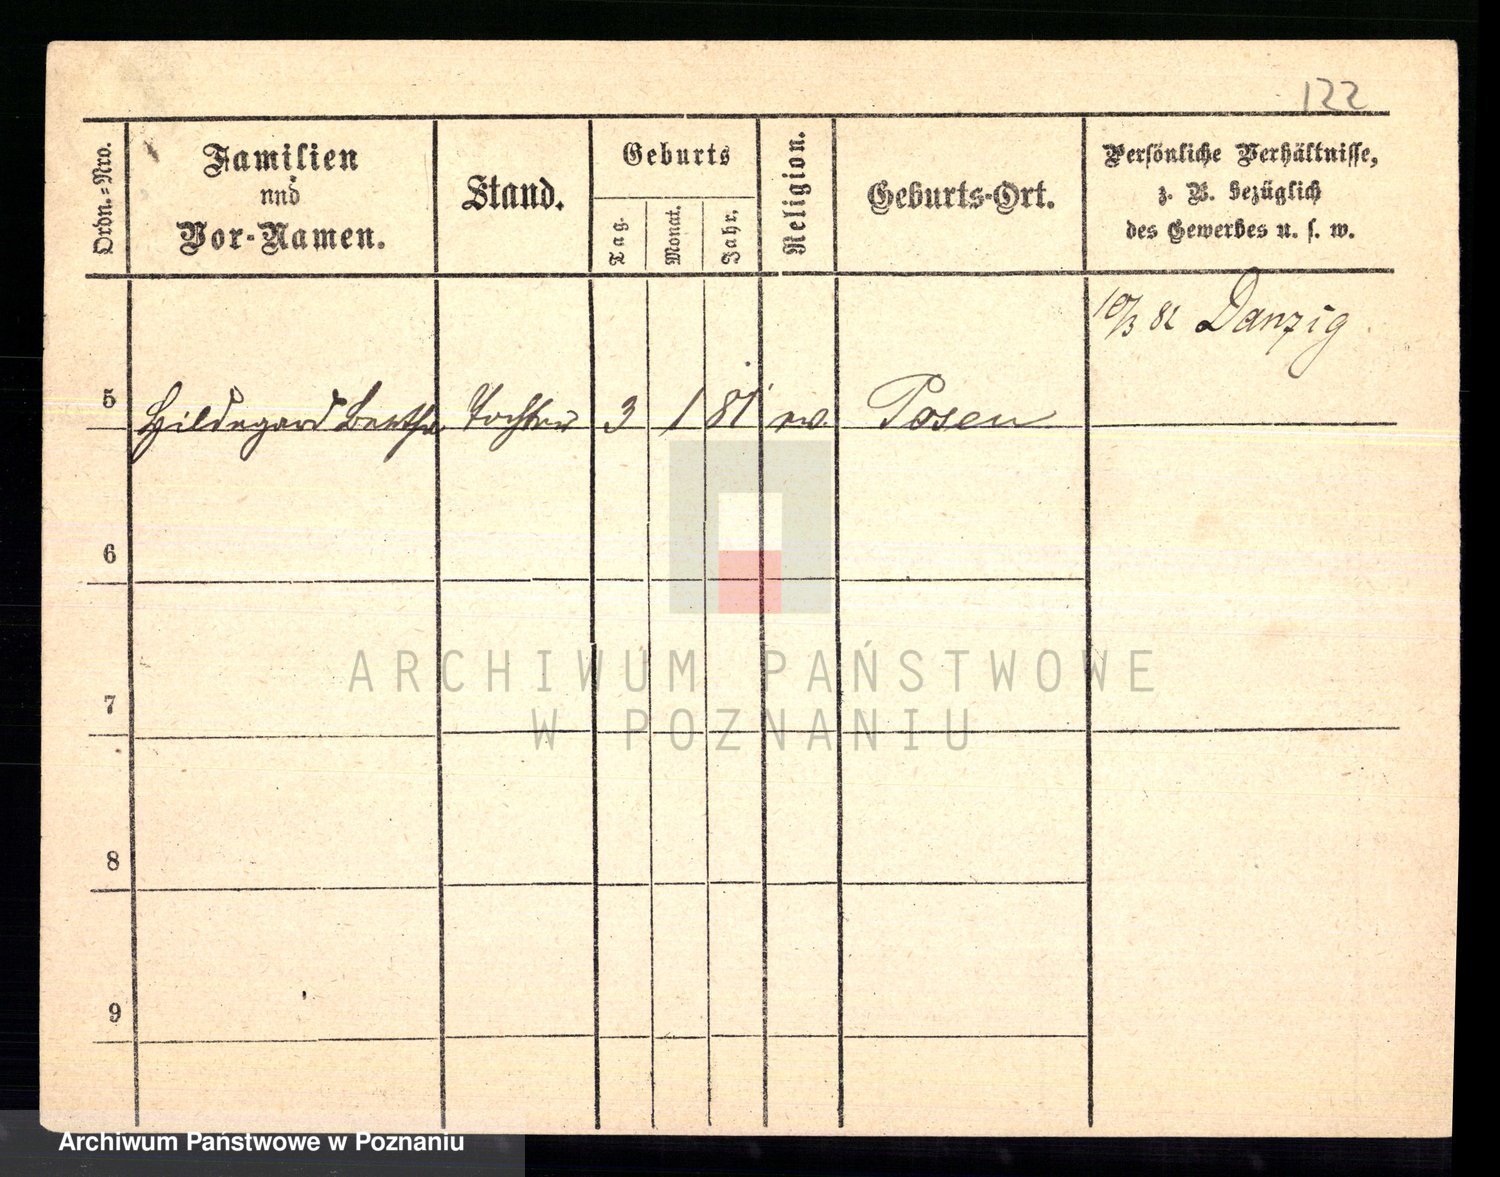 122
Ordn.=Nro.
Familien
und
Vor-Namen.
Stand.
Geburts
Tag.
Monat.
Jahr.
Religion.
Geburts-Ort.
Persönliche Verhältnisse,
z. B. bezüglich
des Gewerbes u. s. w.
10/3 82 Danzig.
5 Hildegard Bertha Tochter 3 1 81 ev. Posen
6
ARCHIWUM PAŃSTWOWE
7
W POZNANIU
8
9
Archiwum Państwowe w Poznaniu